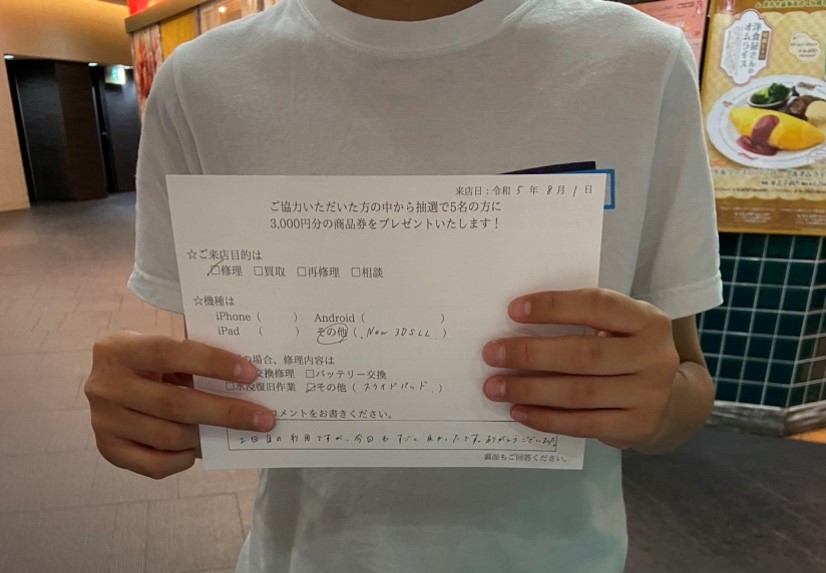 来店日：令和 5 年 8 月 1 日
ご協力いただいた方の中から抽選で5名の方に
3,000円分の商品券をプレゼントいたします！
☆ご来店目的は
☑修理 □買取 □再修理 □相談
☆機種は
iPhone（ ） Android（ ）
iPad （ ） その他（ New 3DSLL ）
の場合、修理内容は
交換修理 □バッテリー交換
□水没復旧作業 ☑その他（ スライドパッド ）
コメントをお書きください。
2回目の利用ですが、今回もすごく良かったです。ありがとうございました
裏面もご回答ください。
洋食屋さんの
オムライス